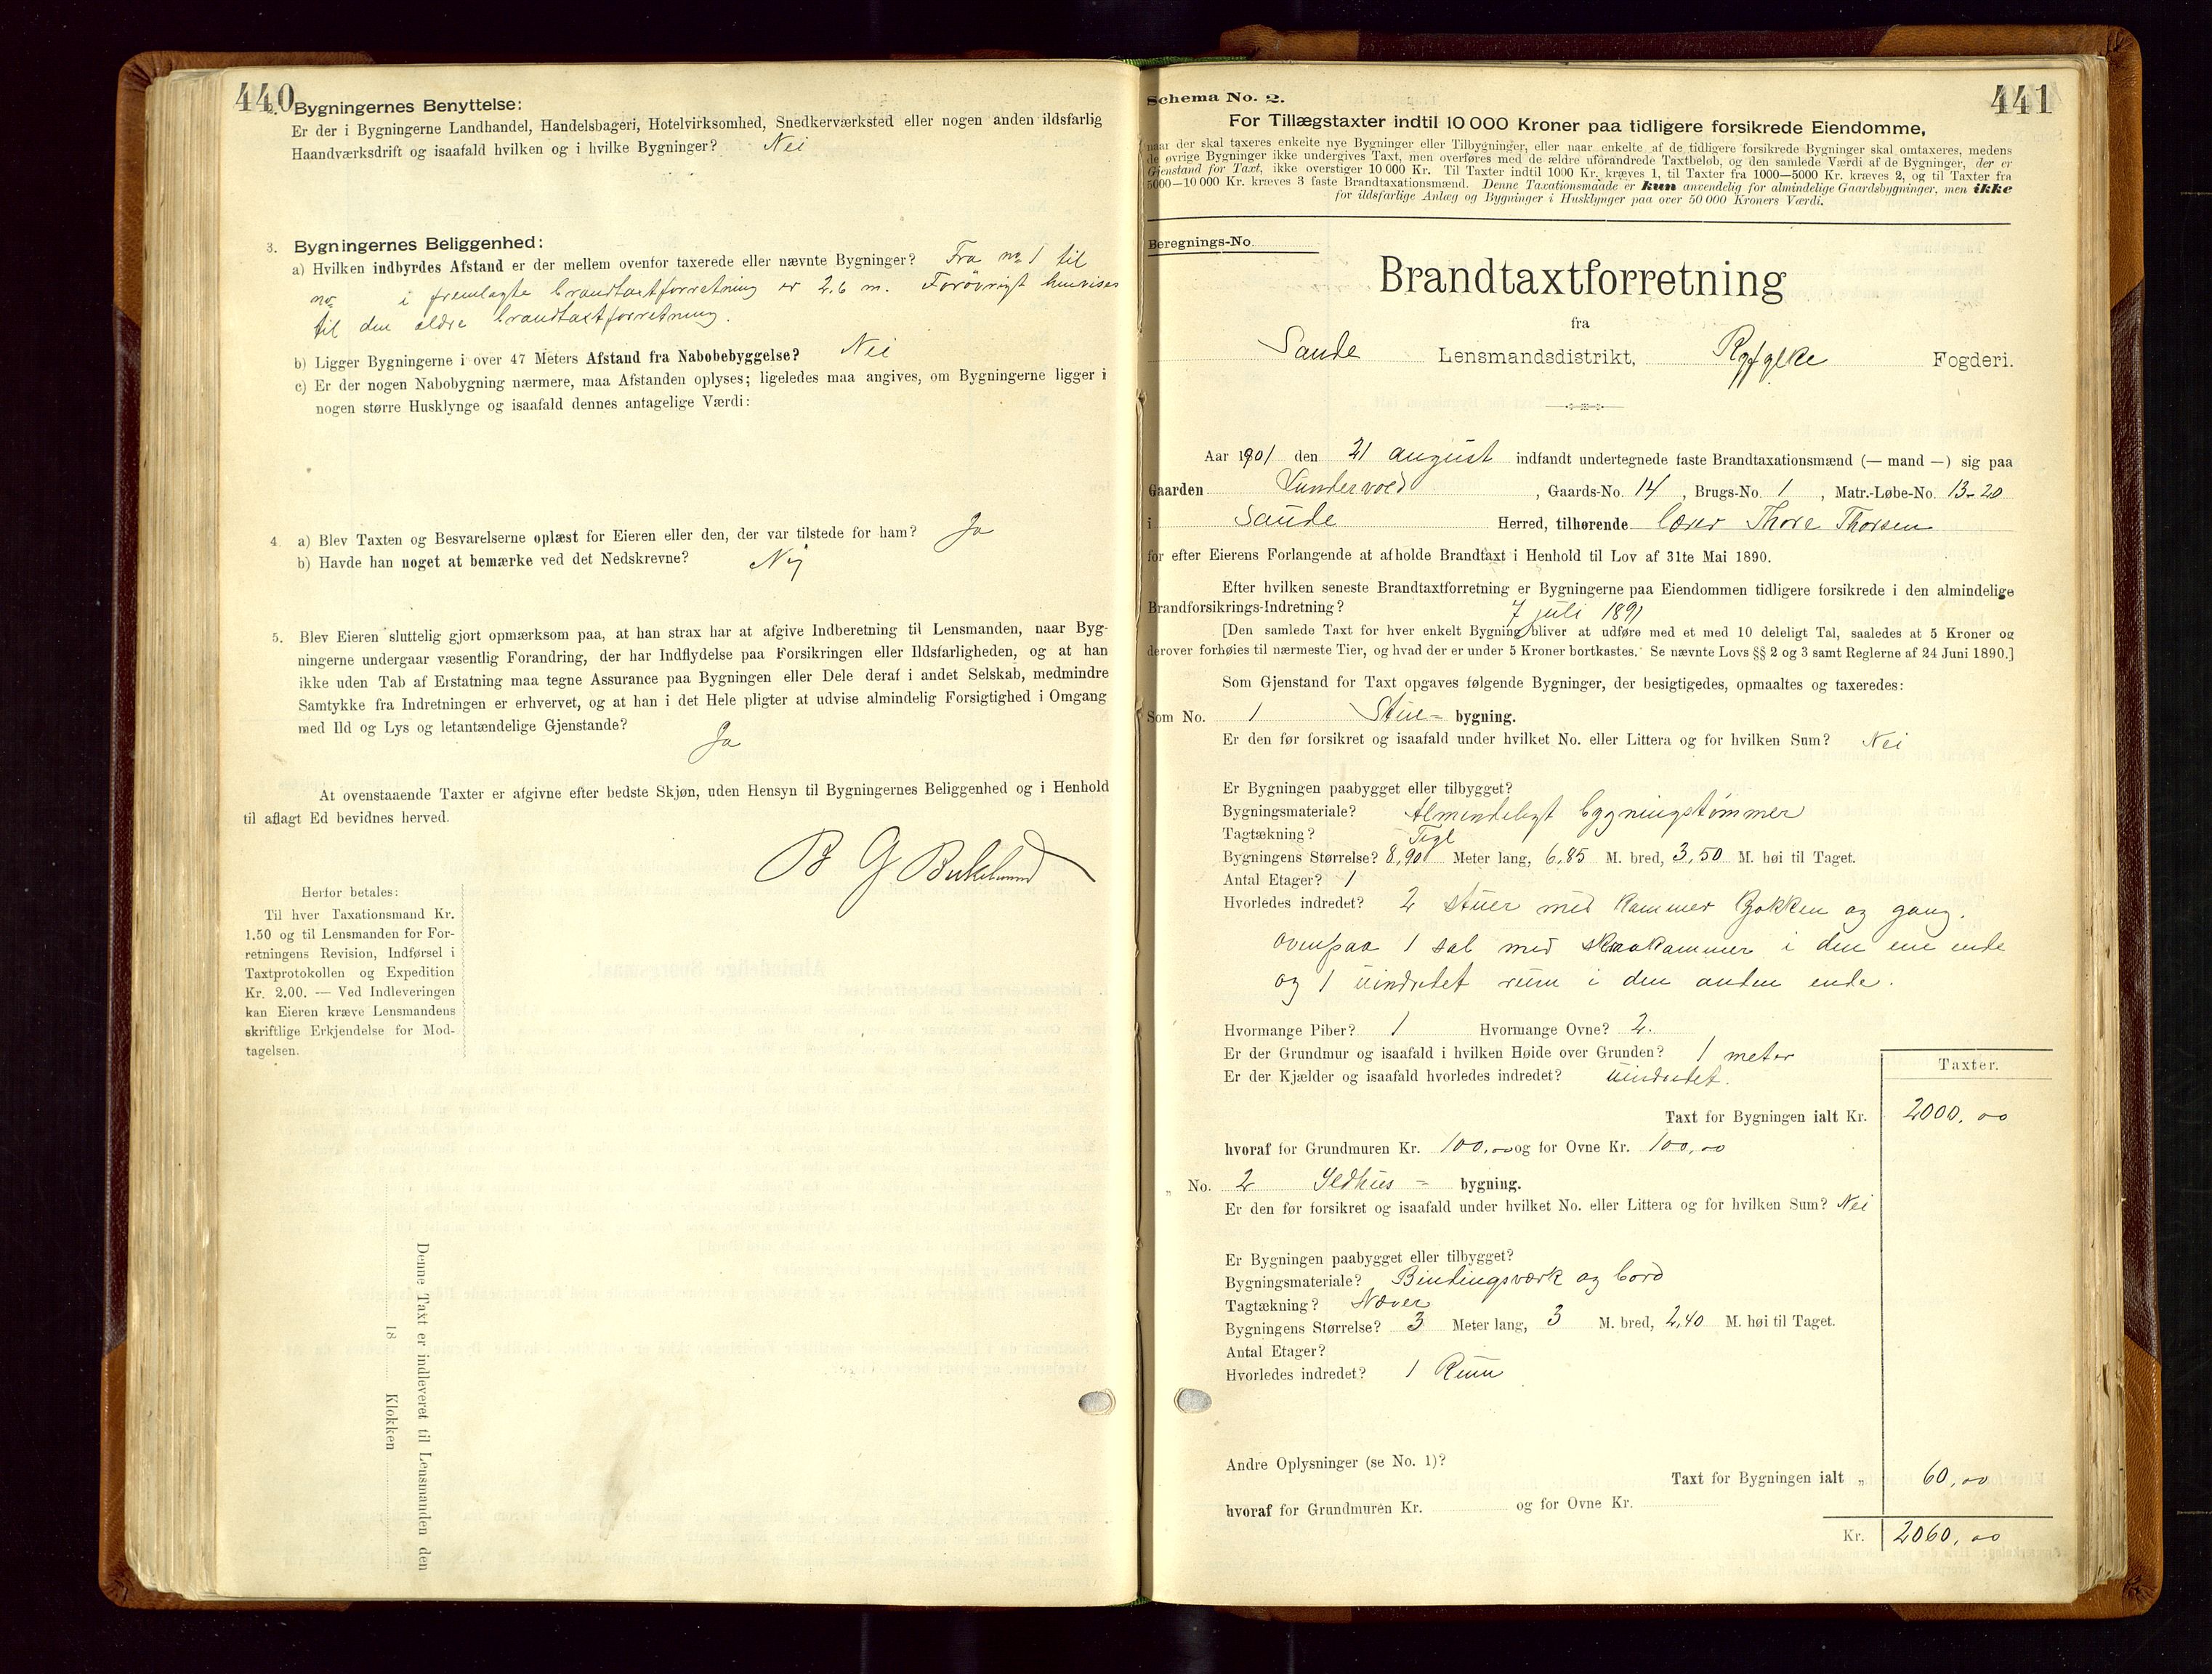 440
2. Bygningernes Benyttelse:
Er der i Bygningerne Landhandel, Handelsbageri, Hotelvirksomhed, Snedkerværksted eller nogen anden ildsfarlig
Haandværksdrift og isaafald hvilken og i hvilke Bygninger? Nei
3. Bygningernes Beliggenhed:
a) Hvilken indbyrdes Afstand er der mellem ovenfor taxerede eller nævnte Bygninger? Fra no 1 til
no i fremlagte brandtaxtforretning er 2,6 m. Forøvrigt henvises
til den ældre brandtaxtforretning.
b) Ligger Bygningerne i over 47 Meters Afstand fra Nabobebyggelse? Nei
c) Er der nogen Nabobygning nærmere, maa Afstanden oplyses; ligeledes maa angives, om Bygningerne ligger i
nogen større Husklynge og isaafald dennes antagelige Værdi:
4. a) Blev Taxten og Besvarelserne oplæst for Eieren eller den, der var tilstede for ham? Ja
b) Havde han noget at bemærke ved det Nedskrevne? Nej
5. Blev Eieren sluttelig gjort opmærksom paa, at han strax har at afgive Indberetning til Lensmanden, naar Byg-
ningerne undergaar væsentlig Forandring, der har Indflydelse paa Forsikringen eller Ildsfarligheden, og at han
ikke uden Tab af Erstatning maa tegne Assurance paa Bygningen eller Dele deraf i andet Selskab, medmindre
Samtykke fra Indretningen er erhvervet, og at han i det Hele pligter at udvise almindelig Forsigtighed i Omgang
med Ild og Lys og letantændelige Gjenstande?
Ja
At ovenstaaende Taxter er afgivne efter bedste Skjøn, uden Hensyn til Bygningernes Beliggenhed og i Henhold
til aflagt Ed bevidnes herved.
B G
Herfor betales:
Til hver Taxationsmand Kr.
1.50 og til Lensmanden for For-
retningens Revision, Indførsel i
Taxtprotokollen og Expedition
Kr. 2.00. — Ved Indleveringen
kan Eieren kræve Lensmandens
skriftlige Erkjendelse for Mod-
tagelsen.
Denne Taxt er indleveret til Lensmanden den
18 Klokken
441
Schema No. 2.
For Tillægstaxter indtil 10 000 Kroner paa tidligere forsikrede Eiendomme,
naar der skal taxeres enkelte nye Bygninger eller Tilbygninger, eller naar enkelte af de tidligere forsikrede Bygninger skal omtaxeres, medens
de øvrige Bygninger ikke undergives Taxt, men overføres med de ældre uforandrede Taxtbeløb, og den samlede Værdi af de Bygninger, der er
Gjenstand for Taxt, ikke overstiger 10 000 Kr. Til Taxter indtil 1000 Kr. kræves 1, til Taxter fra 1000—5000 Kr. kræves 2, og til Taxter fra
5000—10 000 Kr. kræves 3 faste Brandtaxationsmænd. Denne Taxationsmaade er kun anvendelig for almindelige Gaardsbygninger, men ikke
for ildsfarlige Anlæg og Bygninger i Husklynger paa over 50 000 Kroners Værdi.
Beregnings-No
Brandtaxtforretning
fra
Saude Lensmandsdistrikt, Ryfylke Fogderi.
Aar 1901 den 21 august indfandt undertegnede faste Brandtaxationsmænd (— mand —) sig paa
Gaarden , Gaards-No. 14 , Brugs-No. 1 , Matr.-Løbe-No. 13-20
i Saude Herred, tilhørende lærer Thore Thorsen
for efter Eierens Forlangende at afholde Brandtaxt i Henhold til Lov af 31te Mai 1890.
Efter hvilken seneste Brandtaxtforretning er Bygningerne paa Eiendommen tidligere forsikrede i den almindelige
Brandforsikrings-Indretning? 7 juli 1891
[Den samlede Taxt for hver enkelt Bygning bliver at udføre med et med 10 deleligt Tal, saaledes at 5 Kroner og
derover forhøies til nærmeste Tier, og hvad der er under 5 Kroner bortkastes. Se nævnte Lovs §§ 2 og 3 samt Reglerne af 24 Juni 1890.]
Som Gjenstand for Taxt opgaves følgende Bygninger, der besigtigedes, opmaaltes og taxeredes:
Som No. 1 Stue- bygning.
Er den før forsikret og isaafald under hvilket No. eller Littera og for hvilken Sum? Nei
Er Bygningen paabygget eller tilbygget?
Bygningsmateriale? Almindeligt bygningstømmer
Tagtækning? Tegl
Bygningens Størrelse? 8,90 Meter lang, 6,85 M. bred, 3,50 M. høi til Taget.
Antal Etager? 1
Hvorledes indredet? 2 stuer med kammer kjøkken og gang.
ovenpaa 1 sal med skraakammer i den ene ende
og 1 uindredet rum i den anden ende.
Hvormange Piber? 1 Hvormange Ovne? 2.
Er der Grundmur og isaafald i hvilken Høide over Grunden? 1 meter
Er der Kjælder og isaafald hvorledes indredet? uindredet.
Taxter.
Taxt for Bygningen ialt Kr. 2000,00
hvoraf for Grundmuren Kr. 100,00 og for Ovne Kr. 100,00
„ No. 2 Ildhus - bygning.
Er den før forsikret og isaafald under hvilket No. eller Littera og for hvilken Sum? Nei
Er Bygningen paabygget eller tilbygget?
Bygningsmateriale? Bindingsværk og bord
Tagtækning? Næver
Bygningens Størrelse? 3 Meter lang, 3 M. bred, 2,40 M. høi til Taget.
Antal Etager?
Hvorledes indredet? 1 Rum
Andre Oplysninger (se No. 1)?
Taxt for Bygningen ialt „ 60,00
hvoraf for Grundmuren Kr. og for Ovne Kr.
Kr. 2060,00